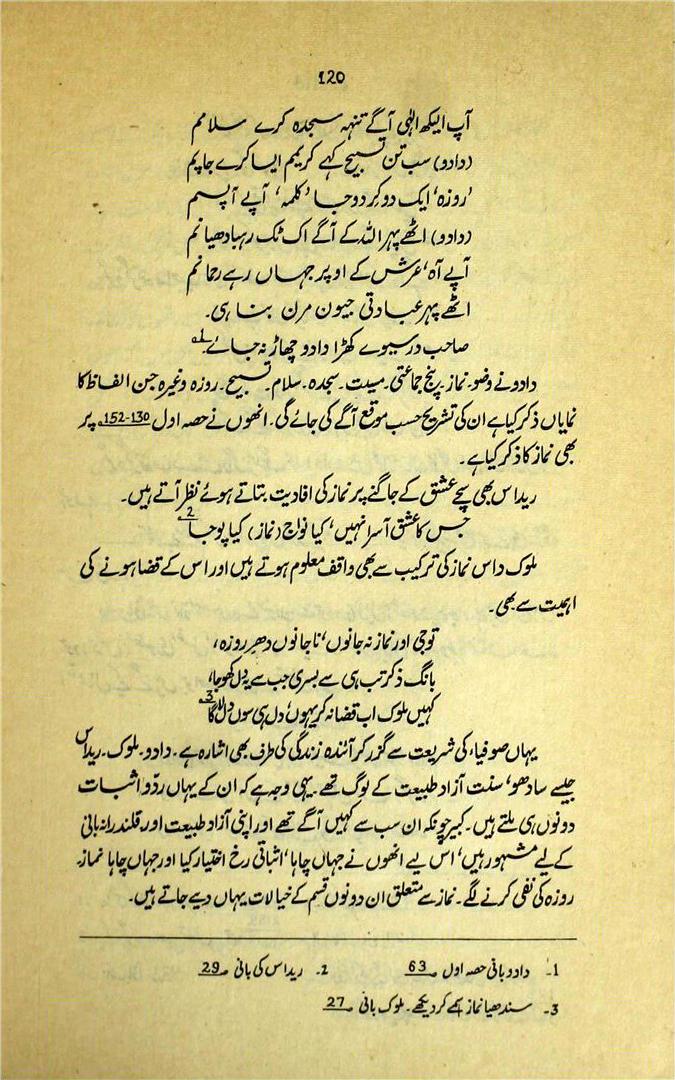 120
آپ الیکھ الٰہی آگے تنہہ سجدہ کرے سلامم
(دادو) سب تن تسبیح کہے کریمم ایسا کرے جاپم
'روزہ' ایک دو کر دوجا 'کلمہ' آپے آپسم
(دادو) اٹھے پہر اللہ کے آگے اک ٹک رہبا دھیانم
آپے آہ' عرش کے اوپر جہاں رہے رحمانم
اٹھے پہر عبادتی جیون مرن بنا ہی۔
صاحب در سیوے کھڑا دادو چھاڑ نہ جائے۔1ؔ
دادو نے وضو۔ نماز۔ پنج جماعتی۔ میت۔ سجدہ۔ سلام۔ تسبیح۔ روزہ وغیرہ جن الفاظ کا
نمایاں ذکر کیا ہے ان کی تشریح حسب موقع آگے کی جائے گی۔ انھوں نے حصہ اول 130-152 پر
بھی نماز کا ذکر کیا ہے۔
ریداس بھی سچے عشق کے جاگنے پر نماز کی افادیت بتاتے ہوئے نظر آتے ہیں۔
جس کا عشق آسرا نہیں' کیا نواج (نماز) کیا پوجا 2
ملوک داس نماز کی ترکیب سے بھی واقف معلوم ہوتے ہیں اور اس کے قضا ہونے کی
اہمیت سے بھی۔
توجی اور نماز نہ جانوں' نا جانوں دھر روزہ،
بانگ ذکر تب ہی سے بسری جب سے یہ دل کھوجا،
کہیں ملوک اب قضا نہ کریہوں' دل ہی سوں دل لاگا 3
یہاں صوفیاء کی شریعت سے گزر کر آئندہ زندگی کی طرف بھی اشارہ ہے۔ دادو۔ ملوک۔ ریداس
جیسے سادھو' سنت آزاد طبیعت کے لوگ تھے۔ یہی وجہ ہے کہ ان کے یہاں ردّ و اثبات
دونوں ہی ملتے ہیں۔ کبیر چونکہ ان سب سے کہیں آگے تھے اور اپنی آزاد طبیعت اور قلندرانہ بانی
کے لیے مشہور ہیں' اس لیے انھوں نے جہاں چاہا' اثباتی رخ اختیار کیا اور جہاں چاہا نماز۔
روزہ کی نفی کرنے لگے۔ نماز سے متعلق ان دونوں قسم کے خیالات یہاں دیے جاتے ہیں۔
1۔ دادو بانی حصہ اول ص 63 2۔ ریداس کی بانی ص 29
3۔ سندھیا نماز سمے کر دیکھے۔ ملوک بانی ص 27